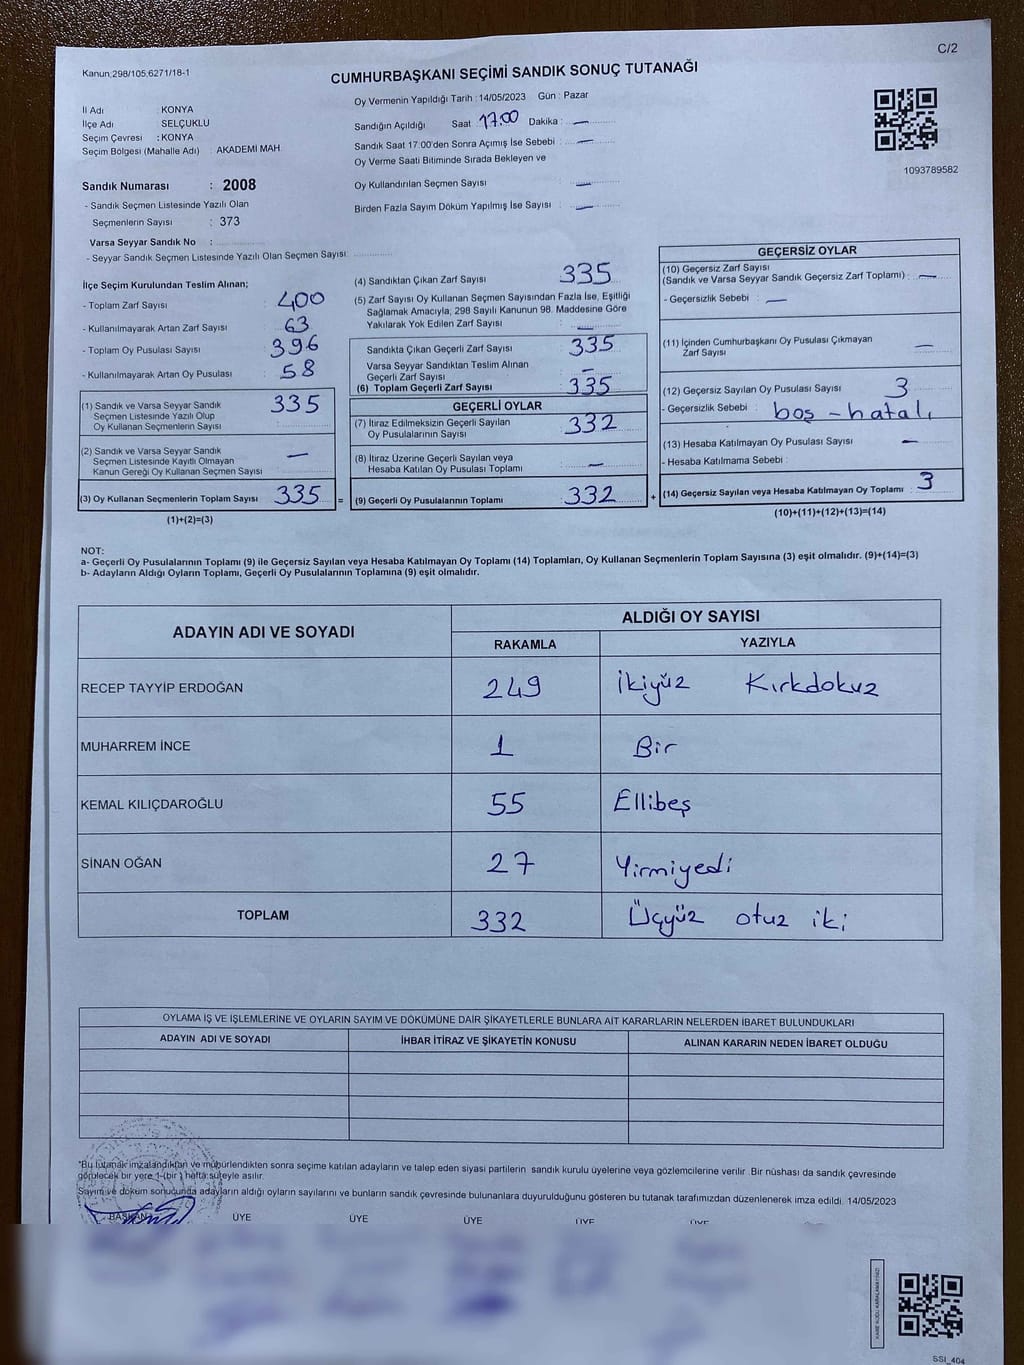 C/2
Kanun:298/105,6271/18-1
CUMHURBAŞKANI SEÇİMİ SANDIK SONUÇ TUTANAĞI
İl Adı : KONYA
İlçe Adı : SELÇUKLU
Seçim Çevresi : KONYA
Seçim Bölgesi (Mahalle Adı) : AKADEMİ MAH
Sandık Numarası : 2008
- Sandık Seçmen Listesinde Yazılı Olan
Seçmenlerin Sayısı : 373
Varsa Seyyar Sandık No :
- Seyyar Sandık Seçmen Listesinde Yazılı Olan Seçmen Sayısı:
Oy Vermenin Yapıldığı Tarih : 14/05/2023 Gün : Pazar
Sandığın Açıldığı Saat 17.00 Dakika : —
Sandık Saat 17:00'den Sonra Açımış İse Sebebi : —
Oy Verme Saati Bitiminde Sırada Bekleyen ve
Oy Kullandırılan Seçmen Sayısı : —
Birden Fazla Sayım Döküm Yapılmış İse Sayısı : —
1093789582
İlçe Seçim Kurulundan Teslim Alınan;
- Toplam Zarf Sayısı : 400
- Kullanılmayarak Artan Zarf Sayısı : 63
- Toplam Oy Pusulası Sayısı : 396
- Kullanılmayarak Artan Oy Pusulası : 58
(1) Sandık ve Varsa Seyyar Sandık
Seçmen Listesinde Yazılı Olup
Oy Kullanan Seçmenlerin Sayısı : 335
(2) Sandık ve Varsa Seyyar Sandık
Seçmen Listesinde Kayıtlı Olmayan
Kanun Gereği Oy Kullanan Seçmen Sayısı : —
(3) Oy Kullanan Seçmenlerin Toplam Sayısı : 335 =
(1)+(2)=(3)
(4) Sandıktan Çıkan Zarf Sayısı : 335
(5) Zarf Sayısı Oy Kullanan Seçmen Sayısından Fazla İse, Eşitliği
Sağlamak Amacıyla; 298 Sayılı Kanunun 98. Maddesine Göre
Yakılarak Yok Edilen Zarf Sayısı : —
Sandıkta Çıkan Geçerli Zarf Sayısı : 335
Varsa Seyyar Sandıktan Teslim Alınan
Geçerli Zarf Sayısı : —
(6) Toplam Geçerli Zarf Sayısı : 335
GEÇERLİ OYLAR
(7) İtiraz Edilmeksizin Geçerli Sayılan
Oy Pusulalarının Sayısı : 332
(8) İtiraz Üzerine Geçerli Sayılan veya
Hesaba Katılan Oy Pusulası Toplamı : —
(9) Geçerli Oy Pusulalarının Toplamı : 332 +
GEÇERSİZ OYLAR
(10) Geçersiz Zarf Sayısı
(Sandık ve Varsa Seyyar Sandık Geçersiz Zarf Toplamı) : —
- Geçersizlik Sebebi : —
(11) İçinden Cumhurbaşkanı Oy Pusulası Çıkmayan
Zarf Sayısı : —
(12) Geçersiz Sayılan Oy Pusulası Sayısı : 3
- Geçersizlik Sebebi : boş - hatalı
(13) Hesaba Katılmayan Oy Pusulası Sayısı : —
- Hesaba Katılmama Sebebi :
(14) Geçersiz Sayılan veya Hesaba Katılmayan Oy Toplamı : 3
(10)+(11)+(12)+(13)=(14)
NOT:
a- Geçerli Oy Pusulalarının Toplamı (9) ile Geçersiz Sayılan veya Hesaba Katılmayan Oy Toplamı (14) Toplamları, Oy Kullanan Seçmenlerin Toplam Sayısına (3) eşit olmalıdır. (9)+(14)=(3)
b- Adayların Aldığı Oyların Toplamı, Geçerli Oy Pusulalarının Toplamına (9) eşit olmalıdır.
ADAYIN ADI VE SOYADI ALDIĞI OY SAYISI
RAKAMLA YAZIYLA
RECEP TAYYİP ERDOĞAN 249 İkiyüz Kırkdokuz
MUHARREM İNCE 1 Bir
KEMAL KILIÇDAROĞLU 55 Ellibeş
SİNAN OĞAN 27 Yirmiyedi
TOPLAM 332 Üçyüz otuz iki
OYLAMA İŞ VE İŞLEMLERİNE VE OYLARIN SAYIM VE DÖKÜMÜNE DAİR ŞİKAYETLERLE BUNLARA AİT KARARLARIN NELERDEN İBARET BULUNDUKLARI
ADAYIN ADI VE SOYADI İHBAR İTİRAZ VE ŞİKAYETİN KONUSU ALINAN KARARIN NEDEN İBARET OLDUĞU
"Bu tutanak imzalandıktan ve mühürlendikten sonra seçime katılan adayların ve talep eden siyasi partilerin sandık kurulu üyelerine veya gözlemcilerine verilir. Bir nüshası da sandık çevresinde
görülecek bir yere 1-(bir) hafta süreyle asılır.
Sayım ve döküm sonucunda adayların aldığı oyların sayılarını ve bunların sandık çevresinde bulunanlara duyurulduğunu gösteren bu tutanak tarafımızdan düzenlenerek imza edildi. 14/05/2023
BAŞKAN ÜYE ÜYE ÜYE ÜYE ÜYE
SSI_404